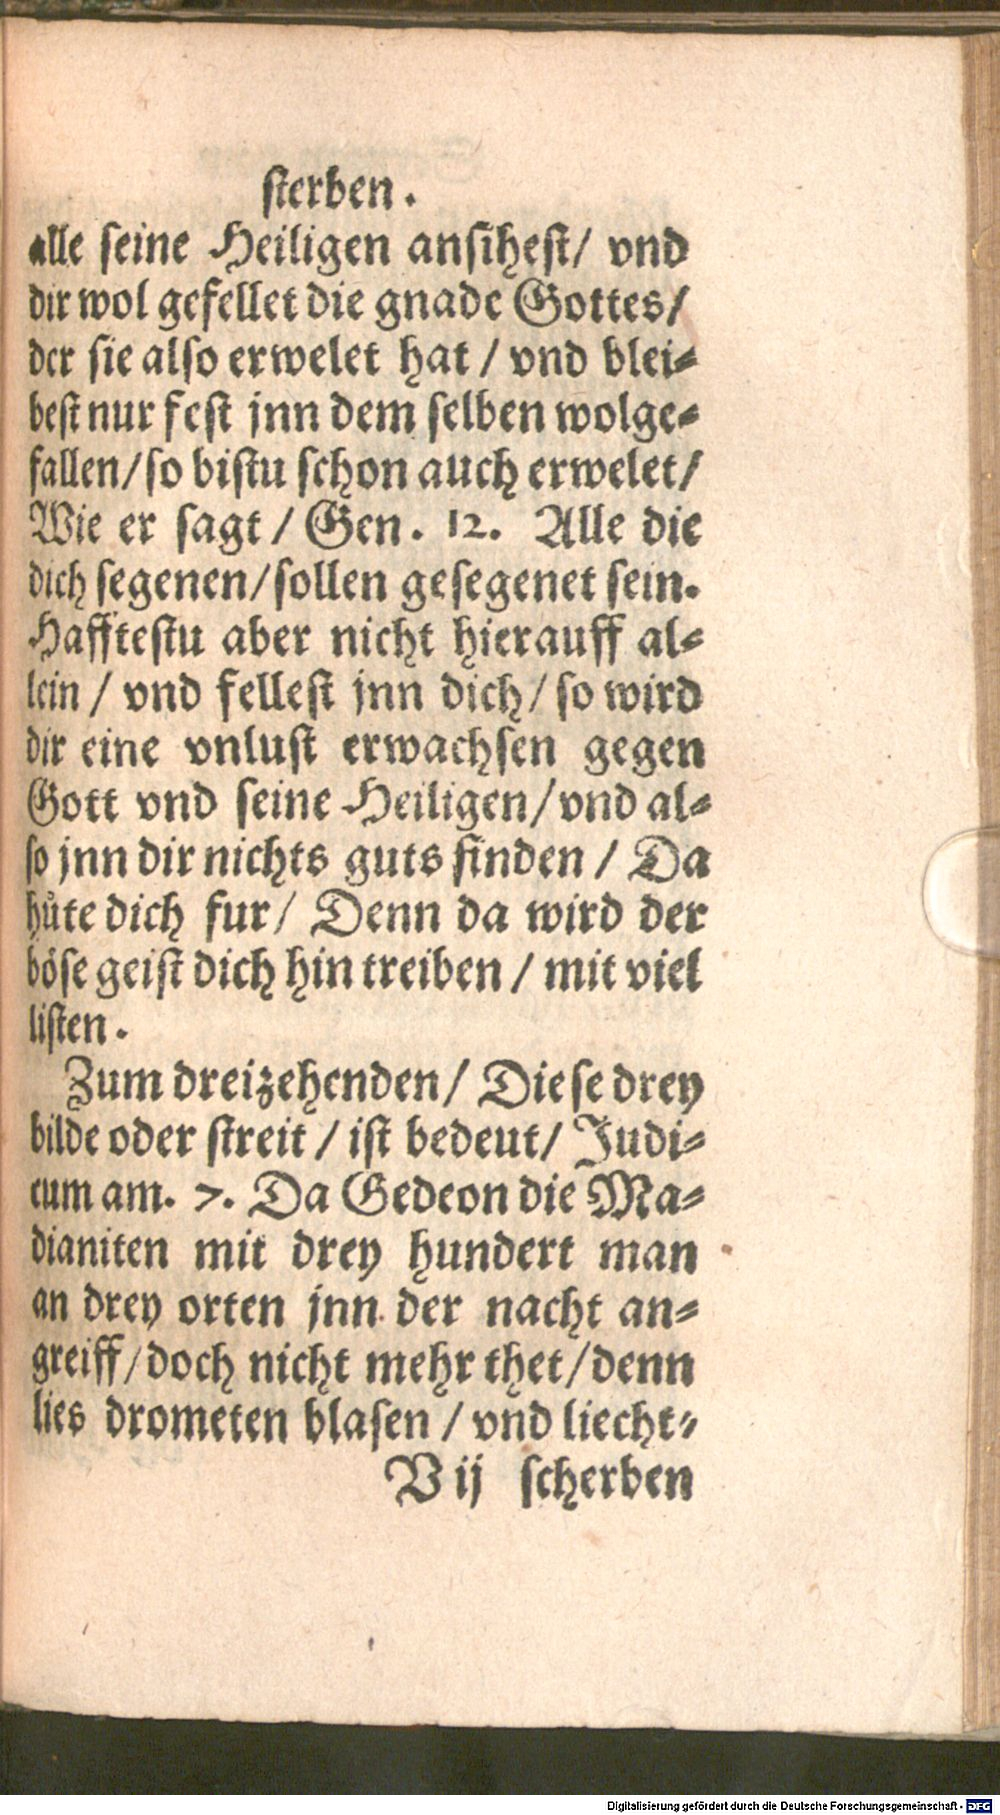 sterben.
alle seine Heiligen ansihest/ vnd
dir wol gefellet die gnade Gottes/
der sie also erwelet hat / vnd blei-
best nur fest jnn dem selben wolge-
fallen/ so bistu schon auch erwelet/
Wie er sagt / Gen. 12. Alle die
dich segenen/ sollen gesegenet sein.
Hafftestu aber nicht hierauff al-
lein / vnd fellest jnn dich/ so wird
dir eine vnlust erwachsen gegen
Gott vnd seine Heiligen/ vnd al-
so jnn dir nichts guts finden / Da
huͤte dich fur/ Denn da wird der
böse geist dich hin treiben / mit viel
listen.
Zum dreizehenden/ Diese drey
bilde oder streit / ist bedeut/ Judi-
cum am. 7. Da Gedeon die Ma-
dianiten mit drey hundert man
an drey orten jnn der nacht an-
greiff/ doch nicht mehr thet/ denn
lies drometen blasen / vnd liecht-
V ij scherben
Digitalisierung gefördert durch die Deutsche Forschungsgemeinschaft - DFG